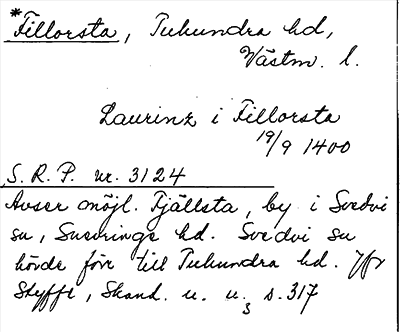 *Fillorsta, Tuhundra hd,
Västm. l.
Laurinz i Fillorsta
19/9 1400
S. R. P. nr. 3124
Avser möjl. Fjällsta, by i Svedvi
sn, Snevringe hd. Svedvi sn
hörde förr till Tuhundra hd. Jfr
Styffe, Skand. u. u.3 s. 317